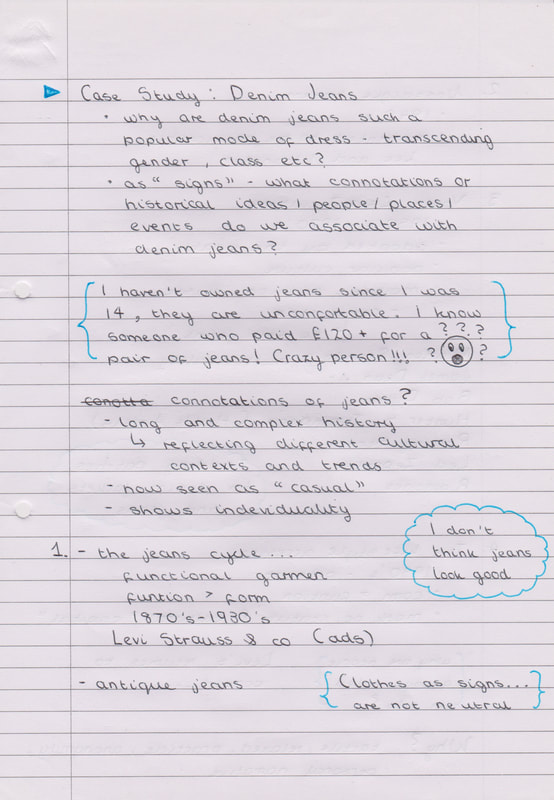 Case Study : Denim Jeans
• why are denim jeans such a
popular mode of dress - transcending
gender, class etc?
• as "signs" - what connotations or
historical ideas / people / places /
events do we associate with
denim jeans?
I haven't owned jeans since I was
14, they are unconfortable. I know
someone who paid £120+ for a ? ? ?
pair of jeans! Crazy person!!! ? ?
conotta connotations of jeans?
- long and complex history
↳ reflecting different cultural
contexts and trends
- now seen as "casual"
- shows indeviduality
1. - the jeans cycle...
functional garmen
funtion > form
1870's-1930's
Levi Strauss & co (ads)
I don't
think jeans
look good
- antique jeans
Clothes as signs...
are not neutral